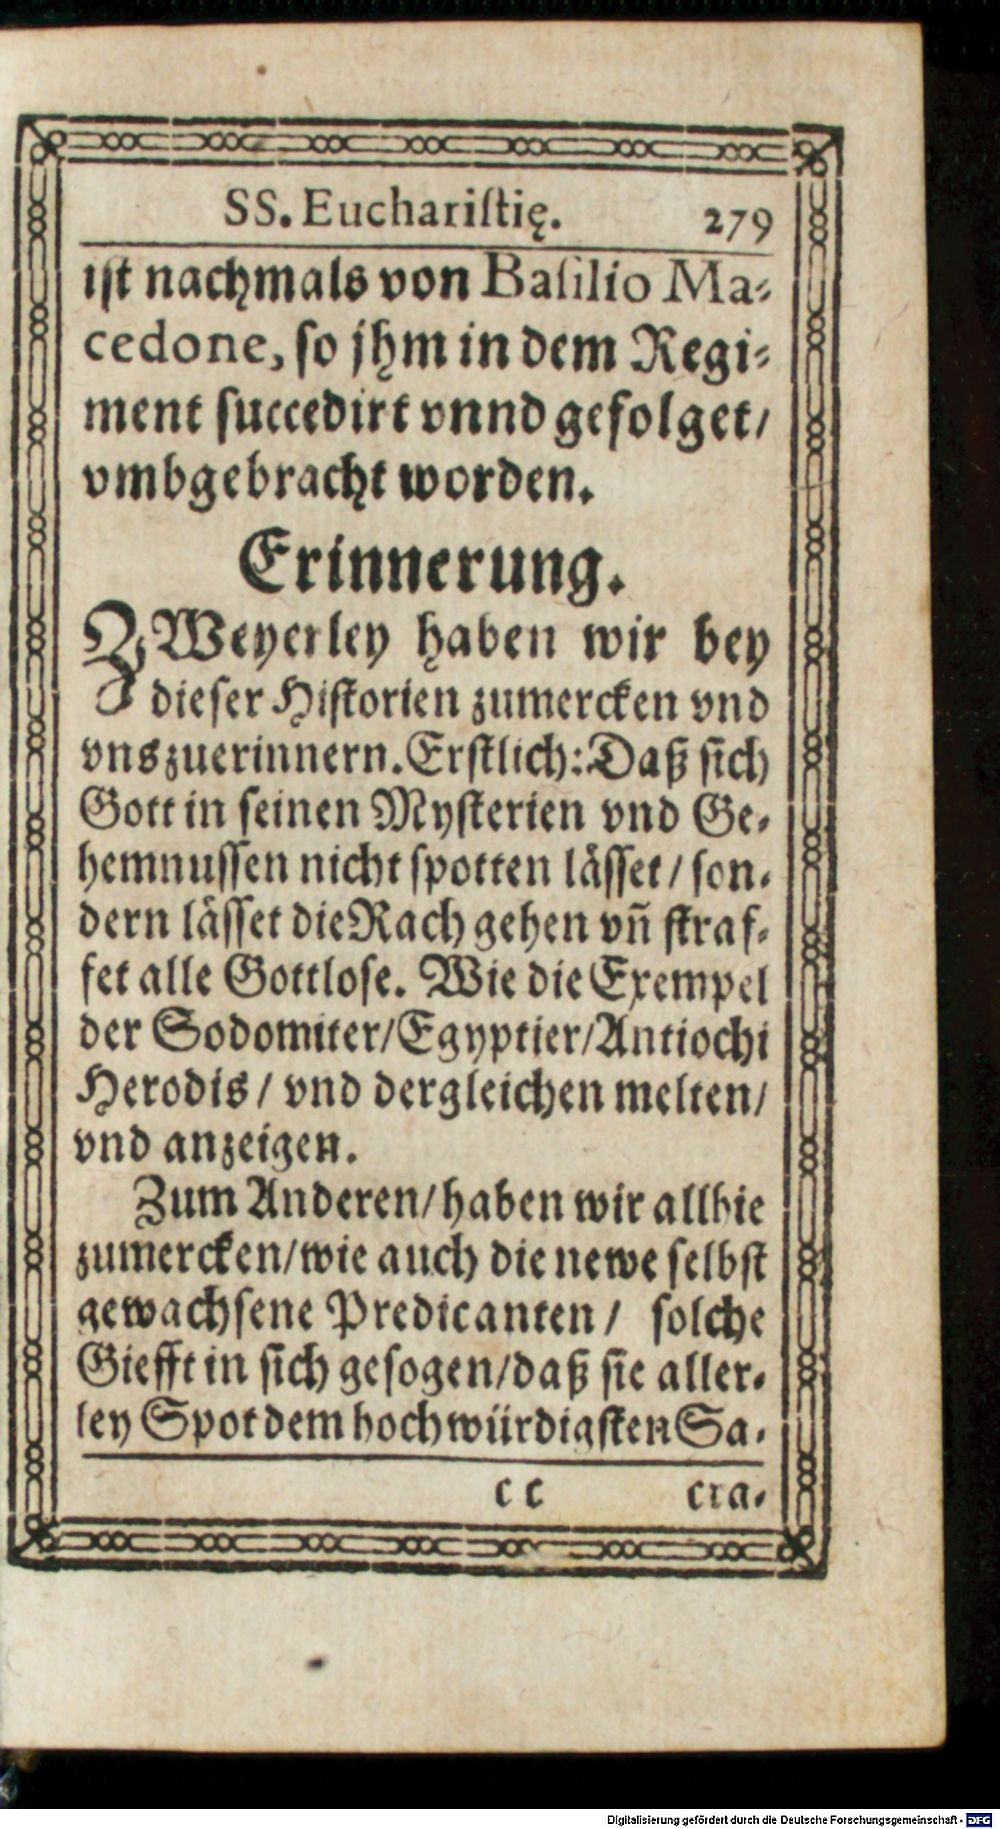 SS. Euchariſtię. 279
iſt nachmals von Baſilio Ma⸗
cedone, ſo jhm in dem Regi⸗
ment ſuccedirt vnnd gefolget/
vmbgebracht worden.
Erinnerung.
ZWeyerley haben wir bey
dieſer Hiſtorien zumercken vnd
vns zuerinnern. Erſtlich: Daß ſich
Gott in ſeinen Myſterien vnd Ge⸗
hemnuſſen nicht ſpotten läſſet/ ſon⸗
dern läſſet die Rach gehen vñ ſtraf⸗
fet alle Gottloſe. Wie die Exempel
der Sodomiter/ Egyptier/ Antiochi
Herodis/ vnd dergleichen melten/
vnd anzeigen.
Zum Anderen/ haben wir allhie
zumercken/ wie auch die newe ſelbſt
gewachſene Predicanten/ ſolche
Giefft in ſich geſogen/ daß ſie aller⸗
ley Spot dem hochwürdigſten Sa⸗
cc cra⸗
Digitalisierung gefördert durch die Deutsche Forschungsgemeinschaft - DFG